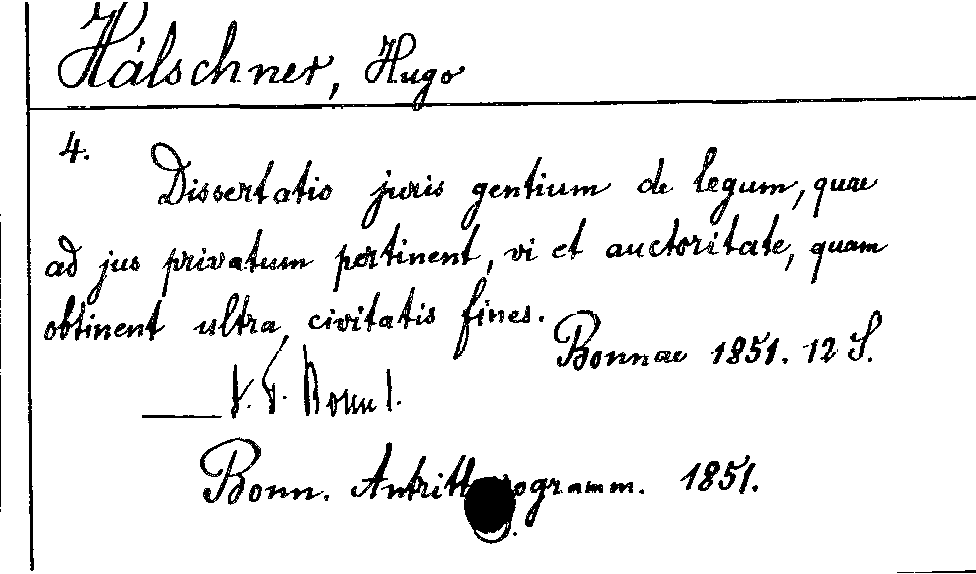 Hálschner, Hugo
4.
Dissertatio juris gentium de legum, quae
ad jus privatum pertinent, vi et auctoritate, quam
obtinent ultra civitatis fines.
Bonnae 1851. 12 S.
Bonn.
Bonn. Antrittsprogramm. 1851.